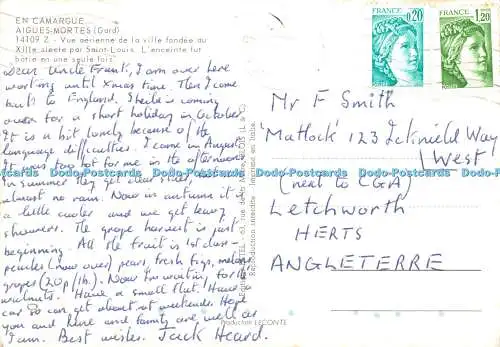 EN CAMARGUE...
AIGUES-MORTES (Gard)
14109 Z - Vue aérienne de la ville fondée au
XIIIe siècle par Saint-Louis. L'enceinte fut
batie en une seule fois
Dear Uncle Frank, I am over here
working until Xmas time. Then I come
back to England. Sheila is coming
over for a short holiday in October.
It is a bit lonely because of the
language difficulties. I came in August.
It was too hot for me in the afternoons
In summer they get clear skies and
almost no rain. Now in autumn it is
a little cooler and we get heavy
showers. The grape harvest is just
beginning. All the fruit is 1st class-
peaches (now over) pears, fresh figs, melons,
grapes (20p/lb.). Now I'm waiting for the
walnuts. Have a small flat. Have a
car so can get about at weekends. Hope
you and Rene and family are well as
I am. Best wishes. Jack Heard.
Production LECONTE
FRANCE 0,20
FRANCE 1,20
Mr F Smith
'Matlock' 123 Icknield Way
(West)
(next to CGA)
Letchworth
HERTS
ANGLETERRE
Dodo-Postcards Dodo-Postcards Dodo-Postcards Dodo-Postcards